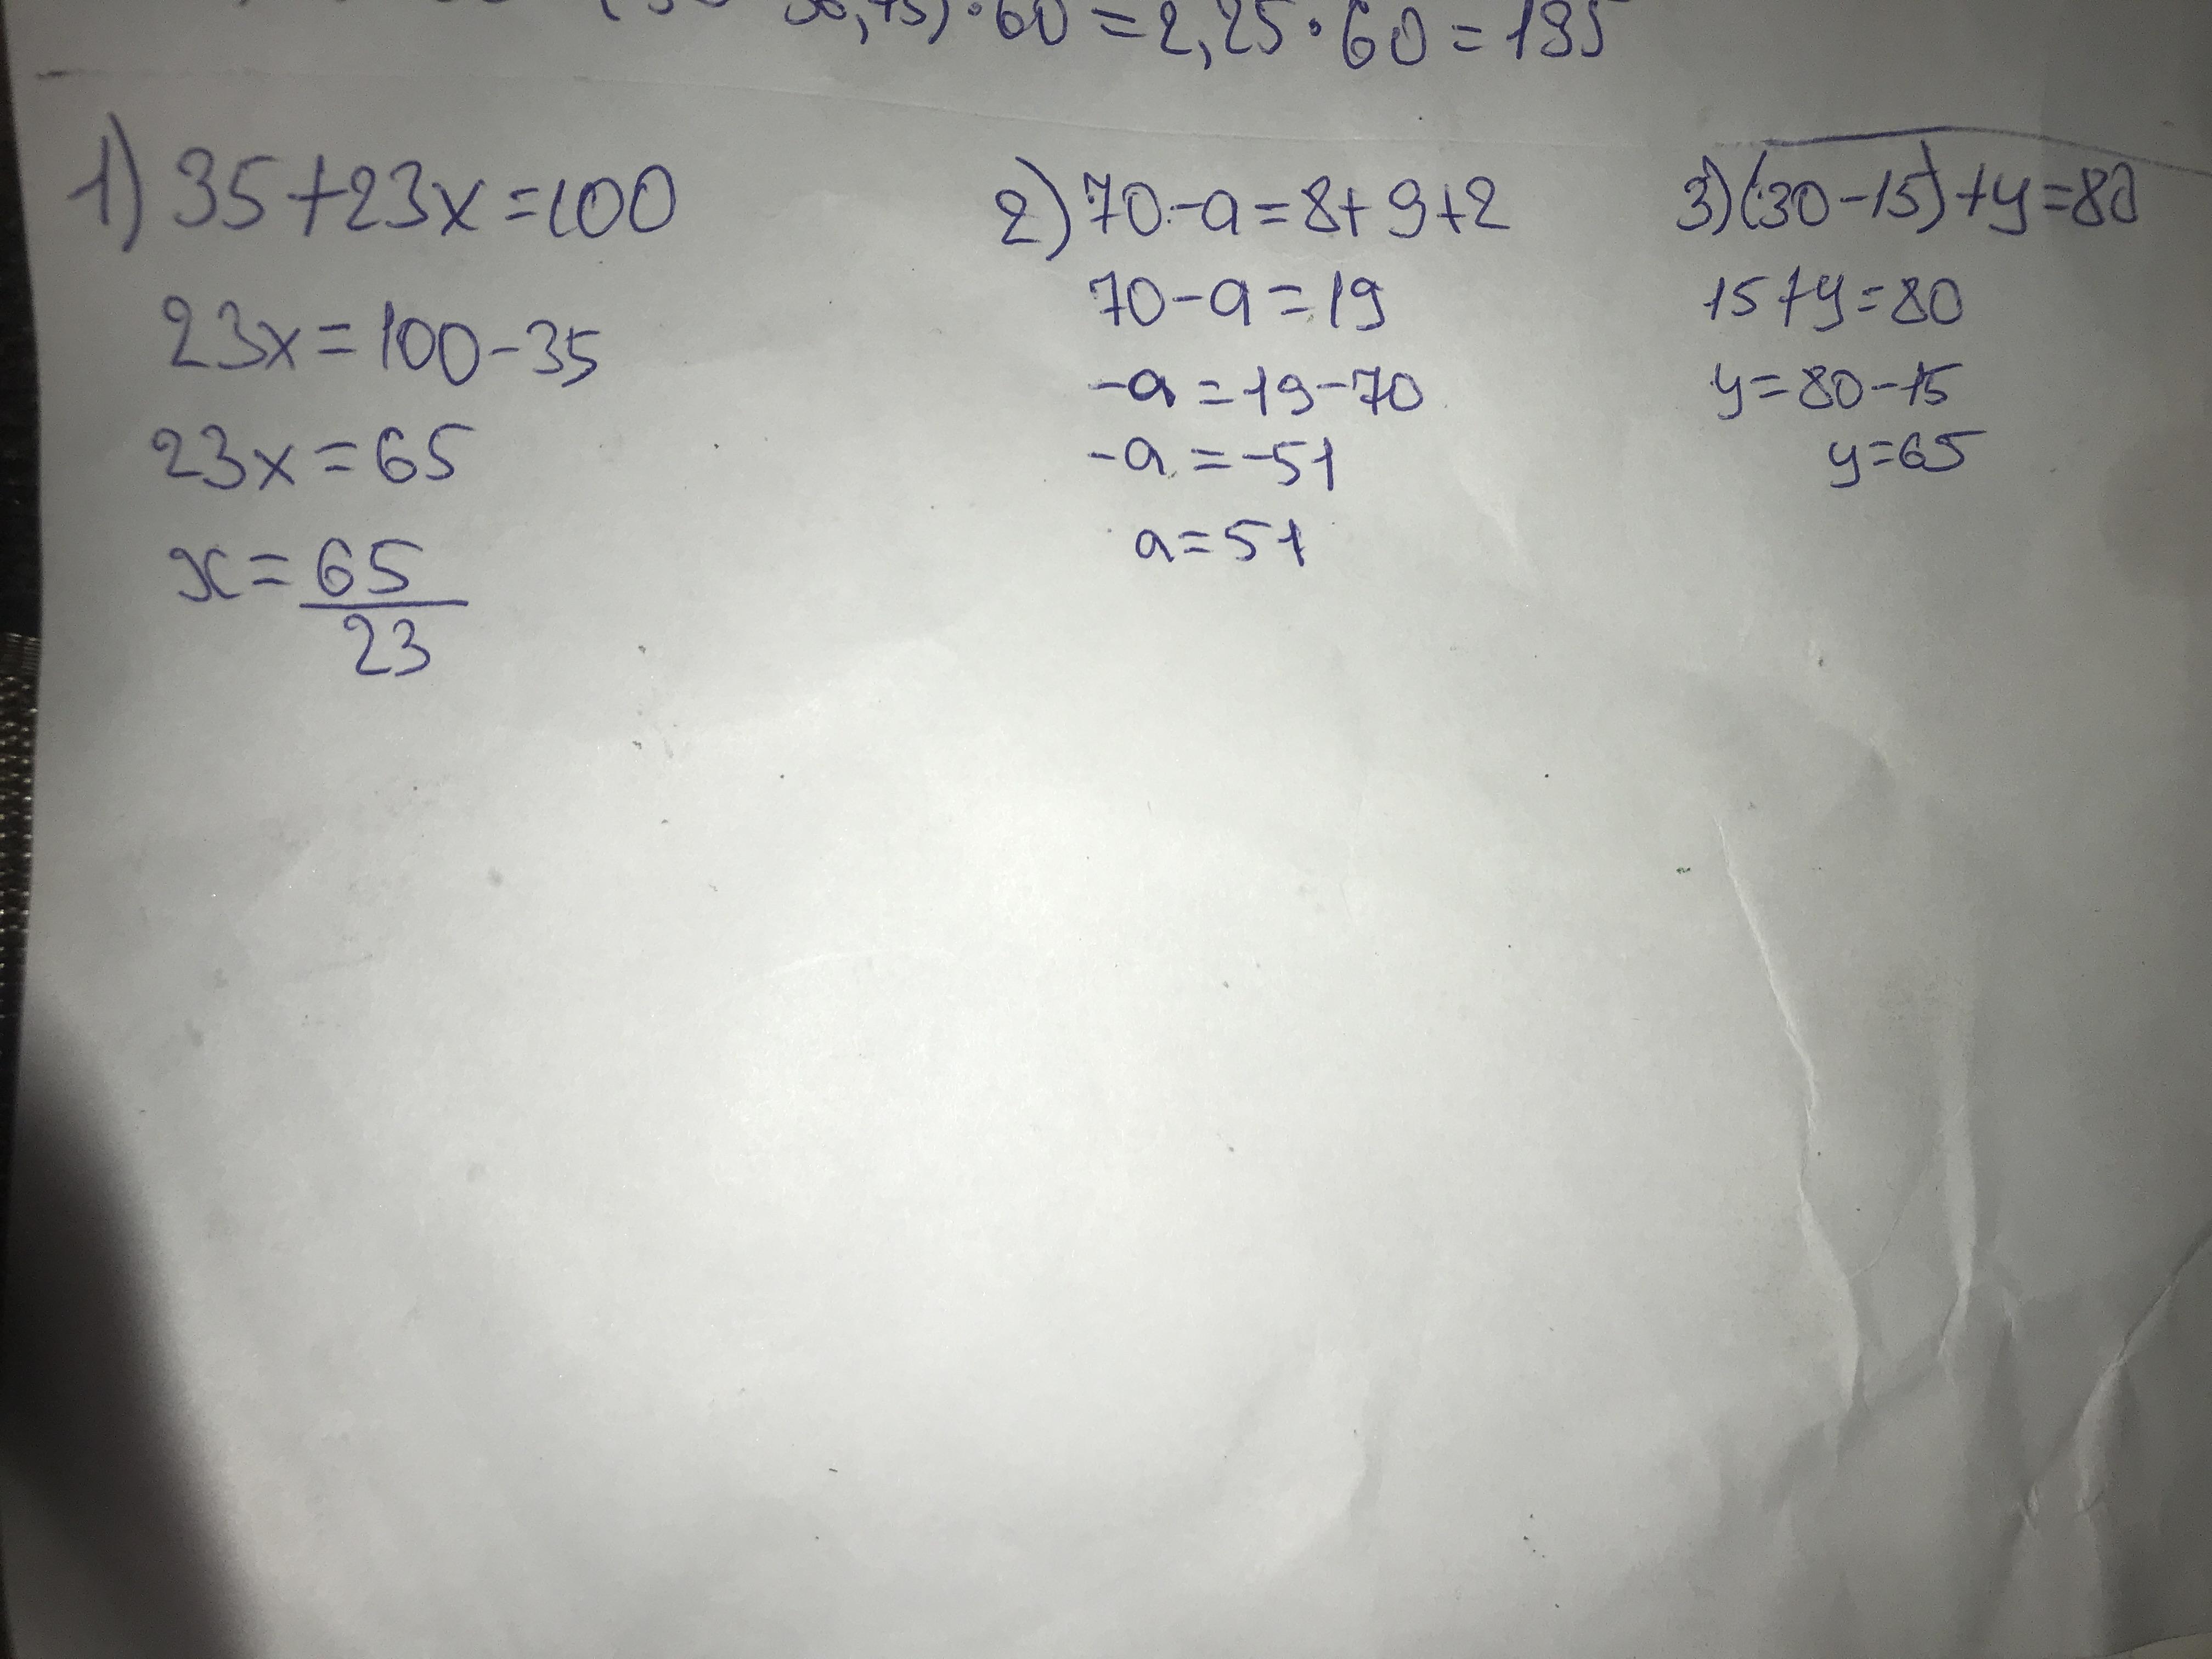 75) · 60 = 2,25 · 60 = 135
1) 35+23x=100
23x=100-35
23x=65
x=65
23
2) 70-a=8+9+2
70-a=19
-a=19-70
-a=-51
a=51
3) (30-15)+y=80
15+y=80
y=80-15
y=65